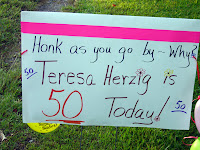 Honk as you go by - Why?
50 Teresa Herzig is
50 Today! 50